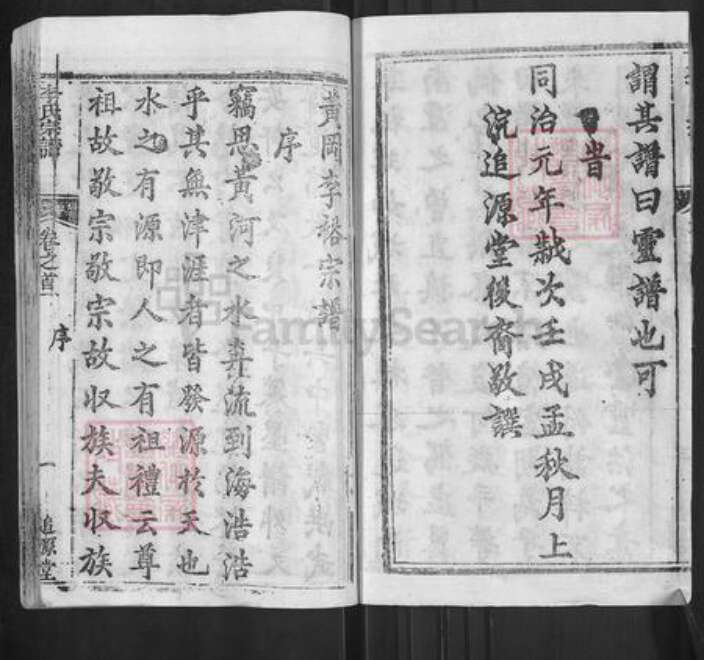 謂其譜曰靈譜也可
旹
同治元年歲次壬戌孟秋月上
浣追源堂後裔敬譔
黃岡李裕宗譜
序
竊思黃河之水奔流到海浩浩
乎其無津涯者皆發源於天也
水之有源即人之有祖禮云尊
祖故敬宗敬宗故収族夫収族
李氏宗譜
卷之首
序
一
追源堂
FamilySearch